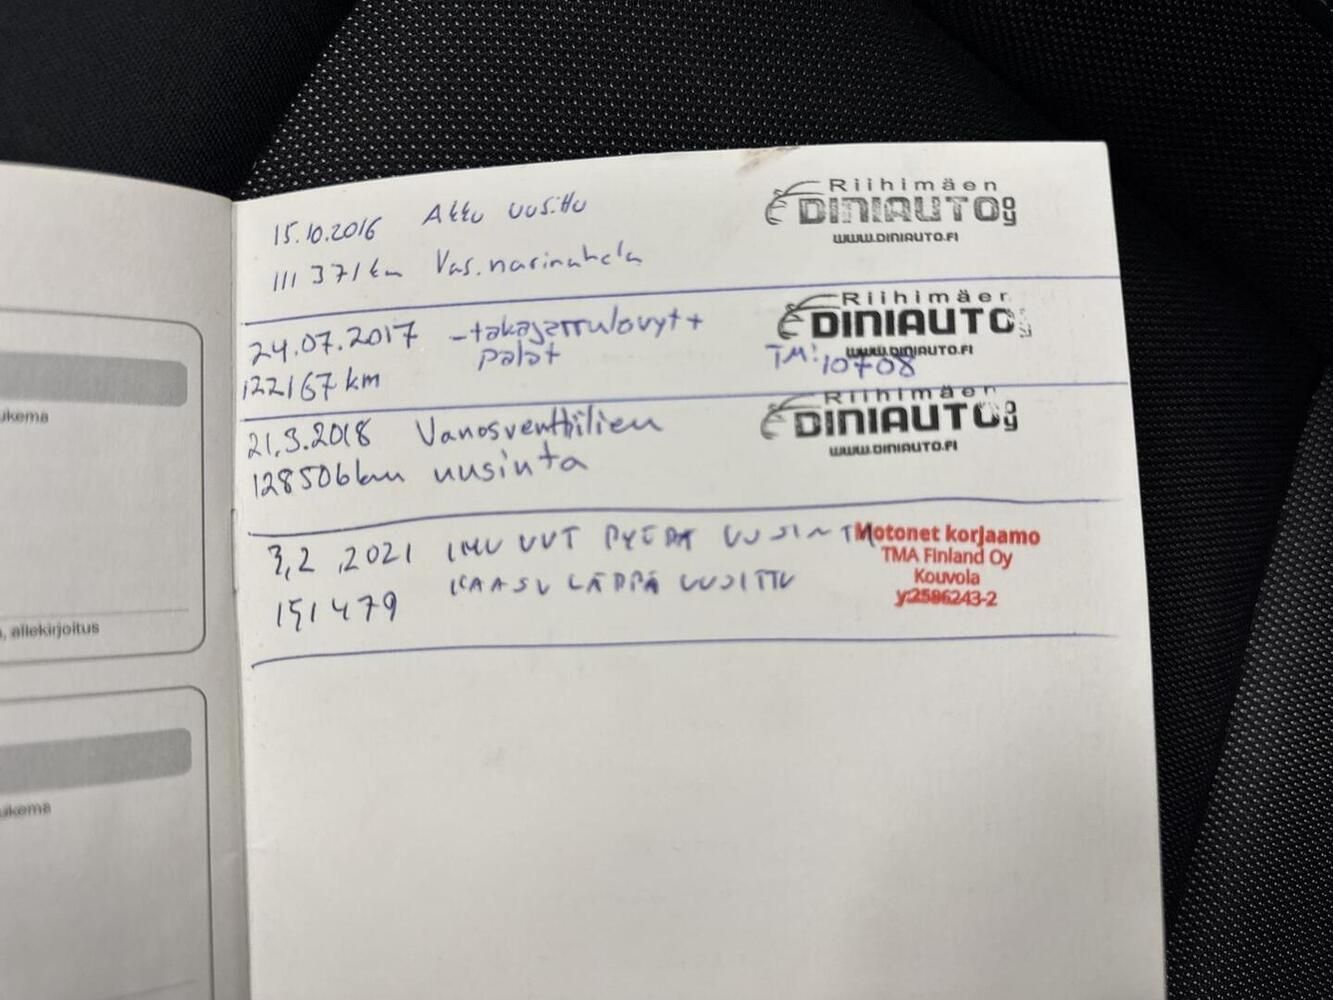 15.10.2016 Akku uusittu
Riihimäen
DINIAUTO OY
WWW.DINIAUTO.FI
111 371 km Vas.
24.07.2017 -takajarrulevyt +
palat
122167 km
Riihimäen
DINIAUTO
WWW.DINIAUTO.FI
TM: 10708
21.3.2018 Vanosventtiilien
128506km uusinta
Riihimäen
DINIAUTO OY
WWW.DINIAUTO.FI
3,2,2021 IMU
151479 KAASU LÄPPÄ UUSITTU
Motonet korjaamo
TMA Finland Oy
Kouvola
y:2586243-2
ukema
, allekirjoitus
ukema